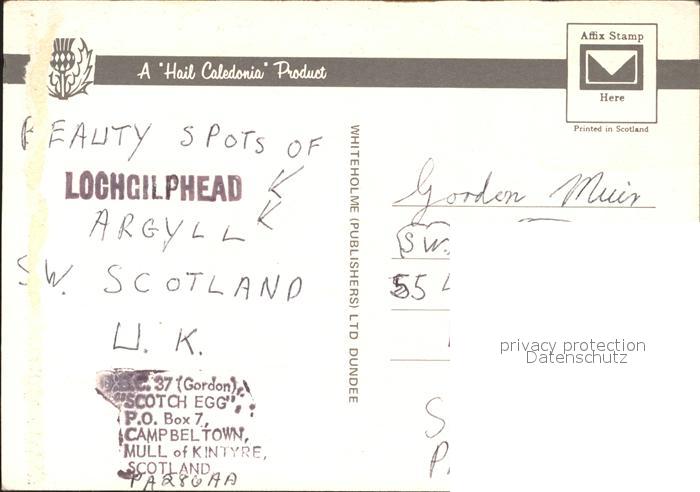 A "Hail Caledonia" Product
Affix Stamp
Here
Printed in Scotland
BEAUTY SPOTS OF
LOCHGILPHEAD
ARGYLL
SW. SCOTLAND
U. K.
37 (Gordon),
"SCOTCH EGG",
P.O. Box 7,
CAMPBELTOWN,
MULL of KINTYRE,
SCOTLAND
PA286AA
WHITEHOLME (PUBLISHERS) LTD DUNDEE
Gordon Muir
(SW.
55
S
P
privacy protection
Datenschutz